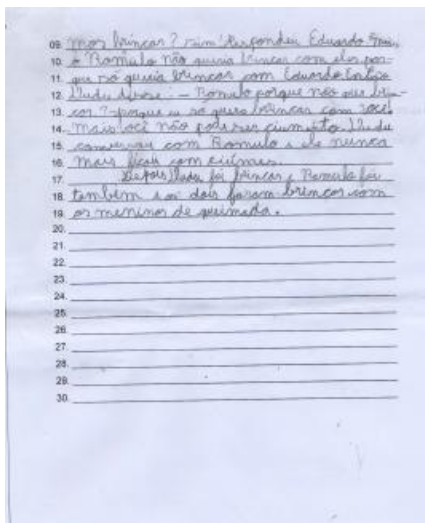 09. mos brincar? sim! Respondeu Eduardo
10. o Romulo não queria brincar com eles por-
11. que só queria brincar com Eduardo
12. Dudu disse: - Romulo porque não quer brin-
13. car? - porque eu só quero brincar com você.
14. mais você não pode ser ciumento. Dudu
15. conversou com Romulo e ele nunca
16. mais ficou com ciúmes.
17. Depois Dudu foi brincar e Romulo foi
18. também e os dois foram brincar com
19. os meninos de queimada.
20.
21.
22.
23.
24.
25.
26.
27.
28.
29.
30.